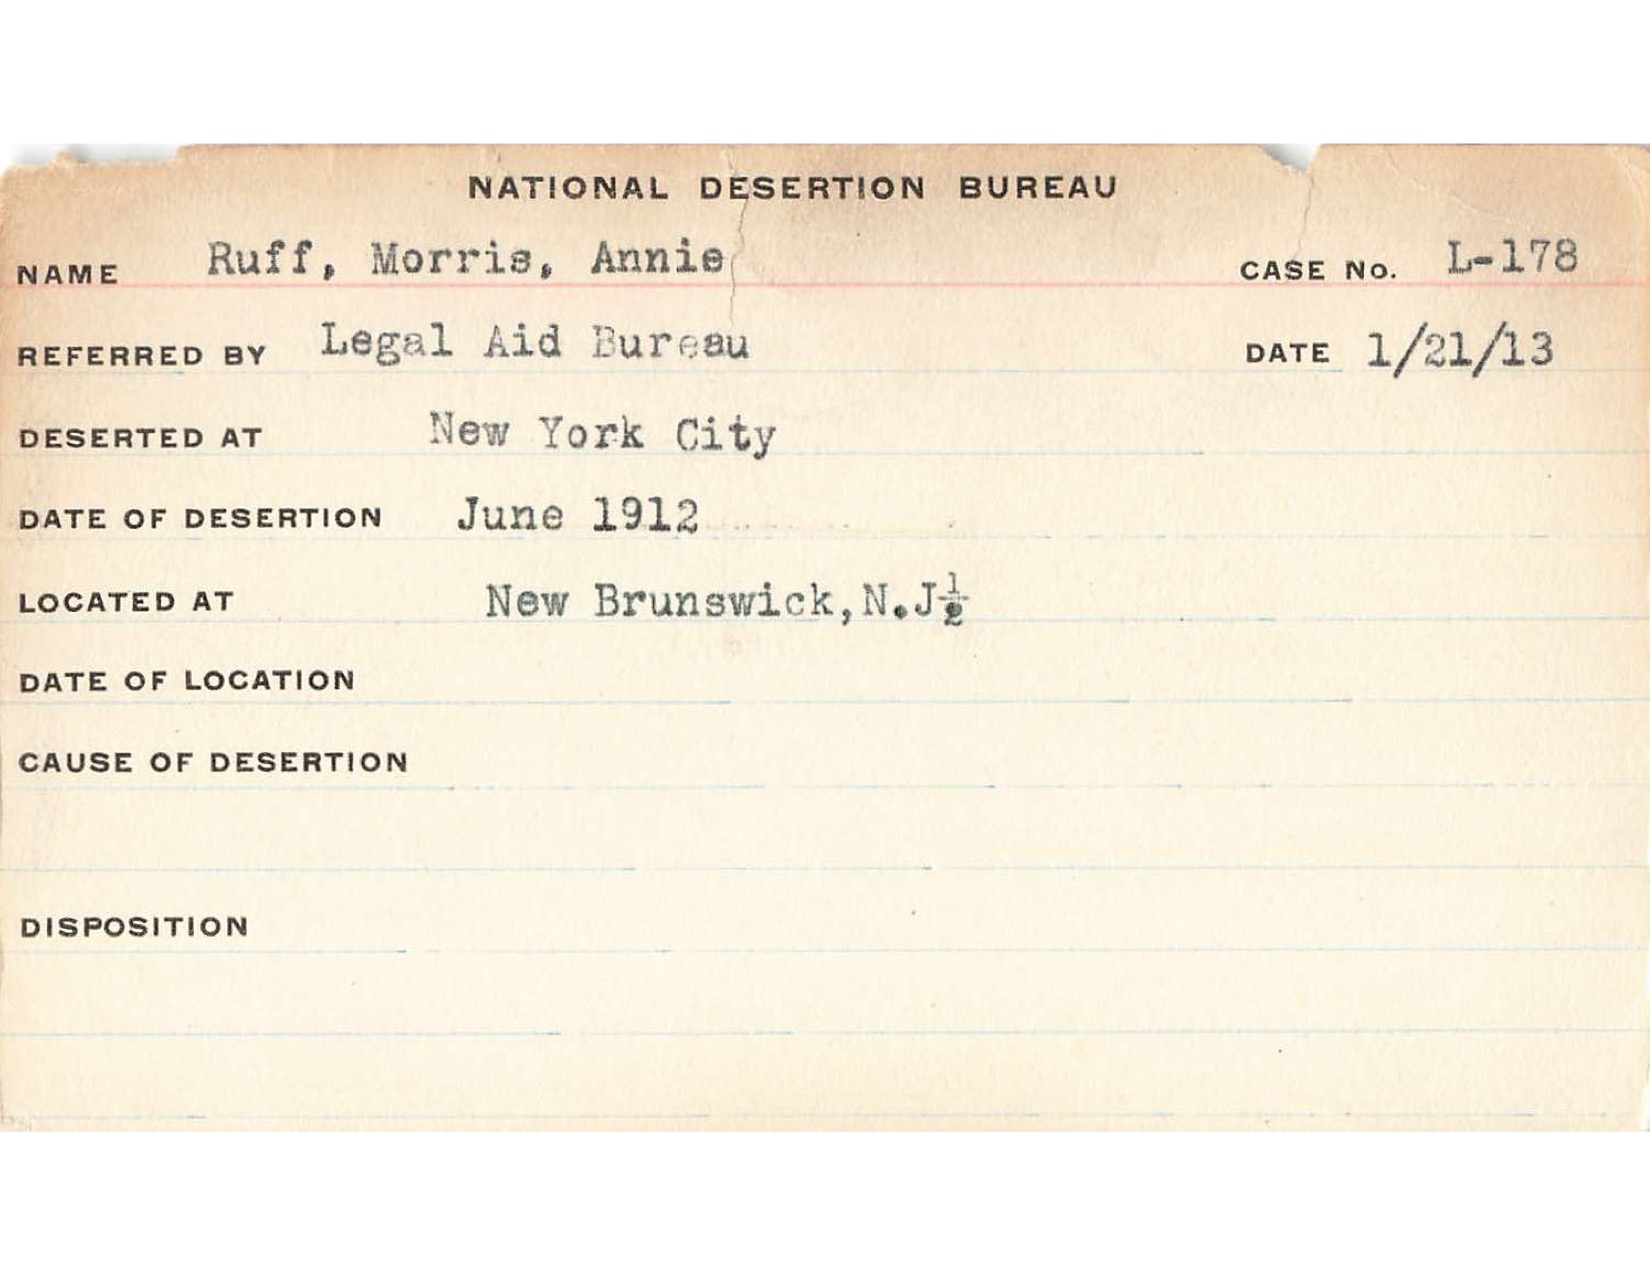 NATIONAL DESERTION BUREAU
NAME Ruff, Morris, Annie CASE No. L-178
REFERRED BY Legal Aid Bureau DATE 1/21/13
DESERTED AT New York City
DATE OF DESERTION June 1912
LOCATED AT New Brunswick,N.J½
DATE OF LOCATION
CAUSE OF DESERTION
DISPOSITION